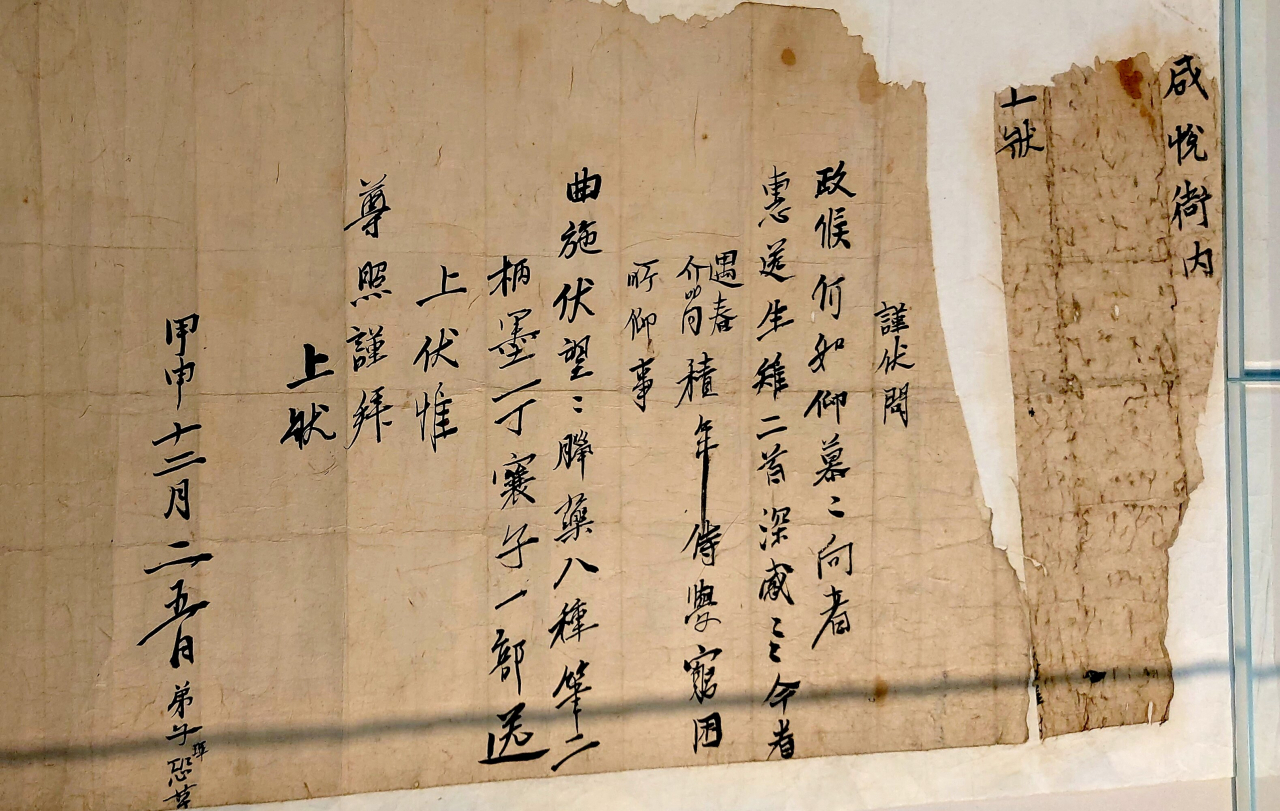 咸悅衙内
上狀
謹伏問
政候何如仰慕〻向者
惠送生雉二首深感〻今者
遇春
積年侍學窮困
所仰事
曲施伏望〻臘藥八種筆二
柄墨一丁囊子一部送
上伏惟
尊照謹拜
上狀
甲申十二月二五日弟子